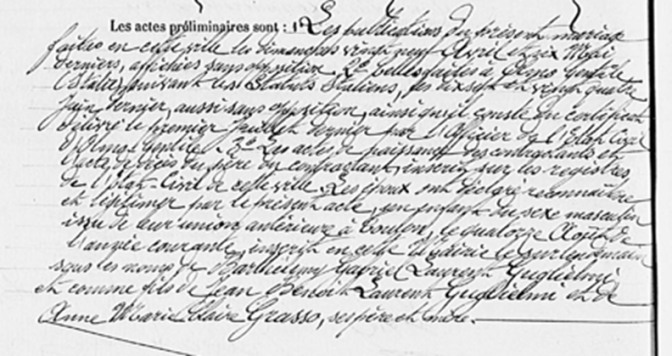 Les actes préliminaires sont : 1° Les publications du présent mariage
faites en cette ville les dimanches vingt neuf Avril et six Mai
derniers, affichées sans opposition 2° celles faites à Olmo Gentile
(Italie) suivant les Statuts Italiens, les dix sept et vingt quatre
Juin dernier, aussi sans opposition, ainsi qu'il conste du certificat
délivré le premier Juillet dernier par l'Officier de l'Etat Civil
d'Olmo Gentile. 3° Les actes de naissance des contractants et
l'acte de décès du père du contractant, inscrits sur les registres
de l'Etat-Civil de cette ville. Les époux ont déclaré reconnaître
et légitimer par le présent acte, un enfant du sexe masculin
issu de leur union antérieure à Toulon, le quatorze Août de
l'année courante, inscrit en cette Mairie le surlendemain
sous les noms de Barthélemy Gabriel Laurent Guglielmi
et comme fils de Jean Benoit Laurent Guglielmi et de
Anne Marie Claire Grasso, ses père et mère.